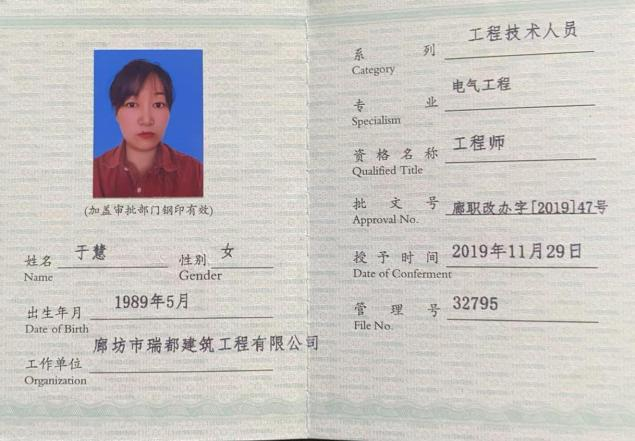 (加盖审批部门钢印有效)
姓名 于慧 性别 女
Name Gender
出生年月 1989年5月
Date of Birth
工作单位 廊坊市瑞都建筑工程有限公司
Organization
系列 工程技术人员
Category
专业 电气工程
Specialism
资格名称 工程师
Qualified Title
批文号 廊职改办字[2019]47号
Approval No.
授予时间 2019年11月29日
Date of Conferment
管理号 32795
File No.